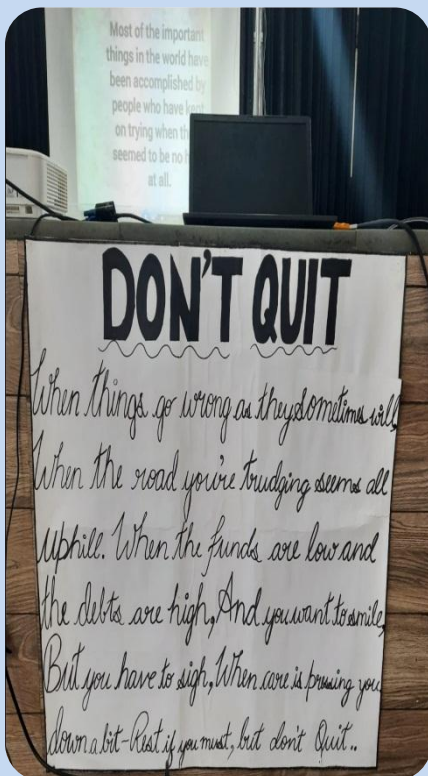 Most of the important
things in the world have
been accomplished by
people who have kept
on trying when th
seemed to be no h
at all.
DON'T QUIT
When things go wrong as they sometimes will,
When the road you're trudging seems all
uphill. When the funds are low and
the debts are high, And you want to smile,
But you have to sigh, When care is pressing you
down a bit-Rest if you must, but don't Quit..